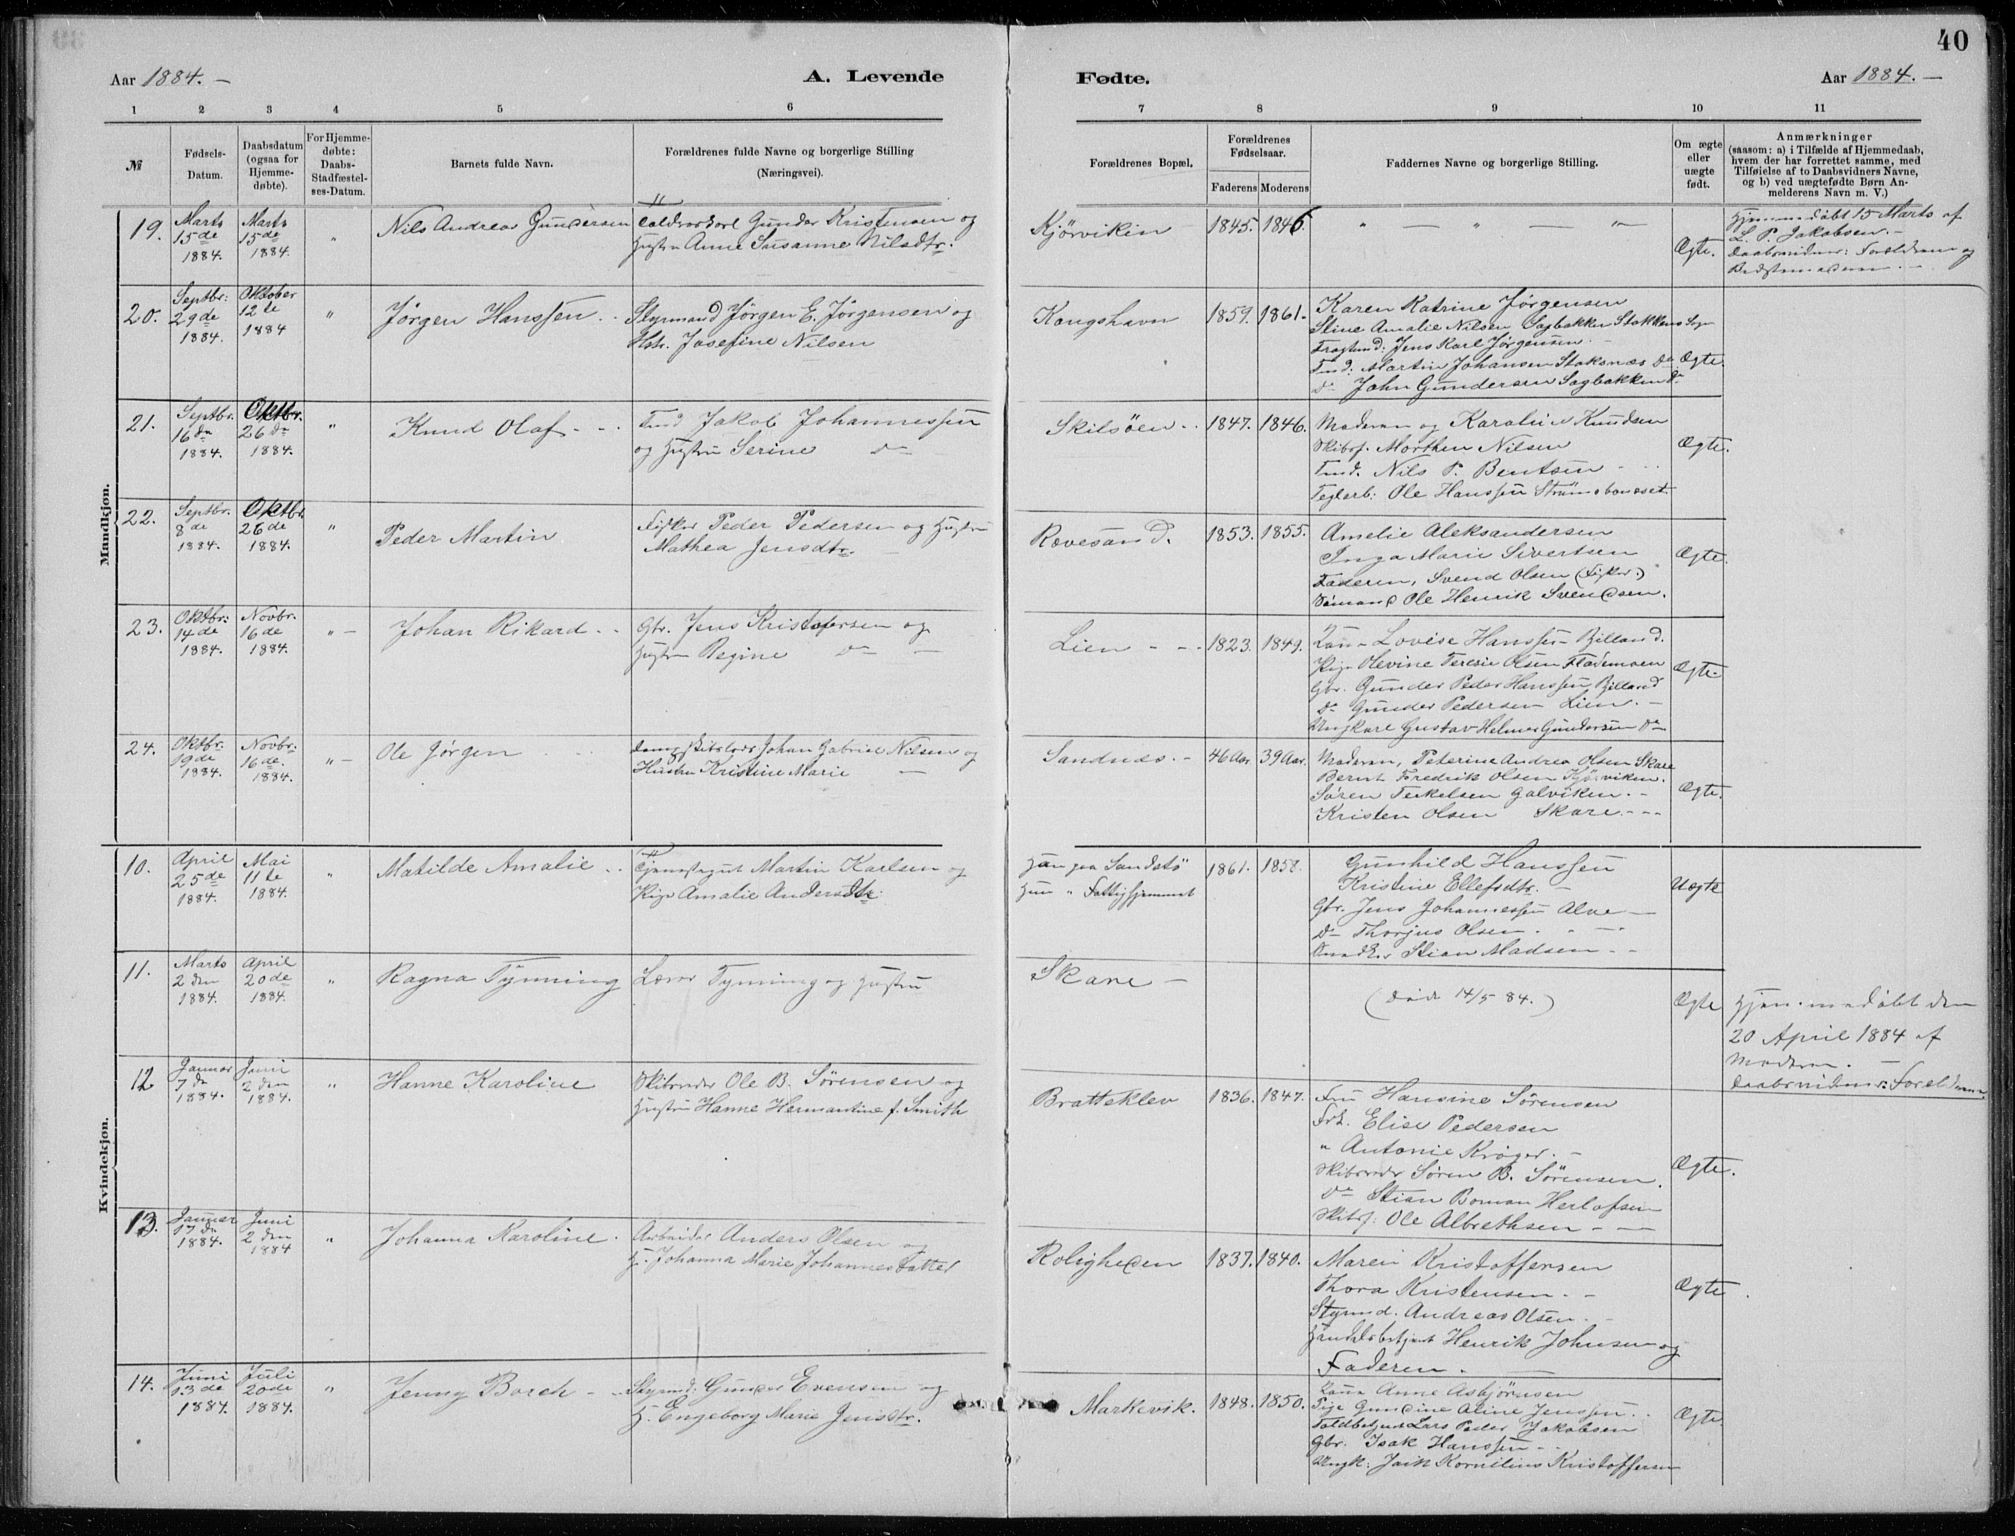 40
Aar 1884. —
A. Levende
Fødte.
Aar 1884. —
1 2 3 4 5 6 7 8 9 10 11
№
Fødsels-
Datum.
Daabsdatum
(ogsaa for
Hjemme-
døbte).
For Hjemme-
døbte:
Daabs-
Stadfæstel-
ses-Datum.
Barnets fulde Navn.
Forældrenes fulde Navne og borgerlige Stilling
(Næringsvei).
Forældrenes Bopæl.
Forældrenes
Fødselsaar.
Faderens Moderens
Faddernes Navne og borgerlige Stilling.
Om ægte
eller
uægte
født.
Anmærkninger
(saasom: a) i Tilfælde af Hjemmedaab,
hvem der har forrettet samme, med
Tilføielse af to Daabsvidners Navne,
og b) ved uægtefødte Børn An-
melderens Navn m. V.)
Mandkjøn.
19.
Marts
15de
1884.
Marts
15de
1884.
"
Nils Andreas Gundersen
Gunder Kristensen og
Hustru Anne Susanne Nilsdtr.
Kjørviken
1845. 1846.
" — " — " —
Ægte.
Hjemmedøbt 15 Marts af
L. P. Jakobsen. —
Daabsvidner: Forældrene og
Bedstemoderen. —
20.
Septbr:
29de
1884.
Oktober
12te
1884
"
Jørgen Hanssen
Styrmand Jørgen E. Jørgensen og
Hstr. Josefine Nilsen
Kongshavn
1859. 1861.
Karen Katrine Jørgensen
Stine Amalie Nilsen Sagbakken Stokkens Sogn
Jens Karl Jørgensen.
Tmd: Martin Johansen Stoksnes Do
Do John Gundersen Sagbakken Do
Ægte.
21.
Septbr.
16de
1884.
Oktbr.
26de
1884.
"
Knud Olaf
Tmd Jakob Johannessen
og Hustru Serine Do
Skilsøen
1847. 1846.
Moderen og Karoline Knudsen
Skibsf. Morthen Nilsen
Tmd. Nils P. Bentsen
Teglarb: Ole Hanssen Strømsboneset.
Ægte.
22.
Septbr.
8de
1884.
Oktbr.
26de
1884.
"
Peder Martin
Fisker Peder Pedersen og Hustru
Mathea Jensdtr.
Rævesand.
1853. 1855.
Amelie Aleksandersen
Inga Marie Sivertsen
Faderen, Svend Olsen (Fisker.)
Sømand Ole Henrik Svendsen.
Ægte.
23.
Oktbr:
14de
1884.
Novbr.
16de
1884.
"
Johan Rikard
Gbr. Jens Kristofersen og
Hustru Regine Do
Lien
1823. 1849.
Kone Lovise Hanssen Bjelland.
Pige Olevine Teresie Olsen Flademoen
Gbr. Gunder Peder Hanssen Bjelland
Do Gunder Pedersen Lien. —
Ungkarl Gustav Helmer Gundersen Do
Ægte.
24.
Oktbr.
19de
1884.
Novbr.
16de.
1884.
"
Ole Jørgen
Johan Gabriel Nilsen og
Hustru Kristine Marie —
Sandnes. —
46 Aar 39 Aar.
Moderen, Peterine Andrea Olsen Skare
Bernt Fredrik Olsen Kjørviken.
Søren Terkelsen Galviken. —
Kristen Olsen Skare.
Ægte.
Kvindekjøn.
10.
April
25de
1884.
Mai
11te
1884.
"
Matilde Amalie
Tjenestegut Martin Karlsen og
Pige Amalie Andersdtr.
Han paa Sandstø
Hun " Fattighjemmet
1861. 1858.
Gunhild Hanssen
Kristine Ellefsdtr. —
Gbr. Jens Johannessen Alve —
Do Thorjus Olsen.
Stian Madsen
Uægte
11.
Marts
2den
1884.
April
20de
1884.
"
Ragna Tynning
Lærer Tynning og Hustru
Skare —
(Død 14/5 84.)
Ægte
Hjemmedøbt den
20 April 1884 af
Moderen. —
Daabsvidner: Forældrene
12
Januar
7de
1884.
Juni
2den
1884.
"
Hanne Karoline
Skibsreder Ole B. Sørensen og
Hustru Hanne Hermantine f. Smith
Bratteklev
1836. 1847.
Fru Hansine Sørensen
Frk. Elise Pedersen
" Antonie Krøger. —
Skibsreder Søren B. Sørensen.
Do Stian Boman Herlofsen
Skibsf: Ole Albrethsen — —
Ægte.
13.
Januar
17de
1884.
Juni
2den
1884
"
Johanna Karoline.
Arbeider Anders Olsen og
H. Johanna Marie Johannesdatter
Roligheden
1837. 1840.
Maren Kristoffersen
Thora Kristensen. —
Styrmd. Andreas Olsen. —
Handelsbetjent Henrik Johnsen og
Faderen. —
Ægte.
14.
Juni
13de
1884.
Juli
20de
1884.
"
Jenny Borch
Styrmd: Gunder Evensen og
H. Engeborg Marie Jensdtr.
Markevik.
1848. 1850.
Kone Anne Asbjørnsen
Pige Gundine Aline Jenssen.
Toldbetjent Lars Peder Jakobsen
Gbr: Isak Hanssen —
Ungk: Kornelius Kristoffersen
Ægte